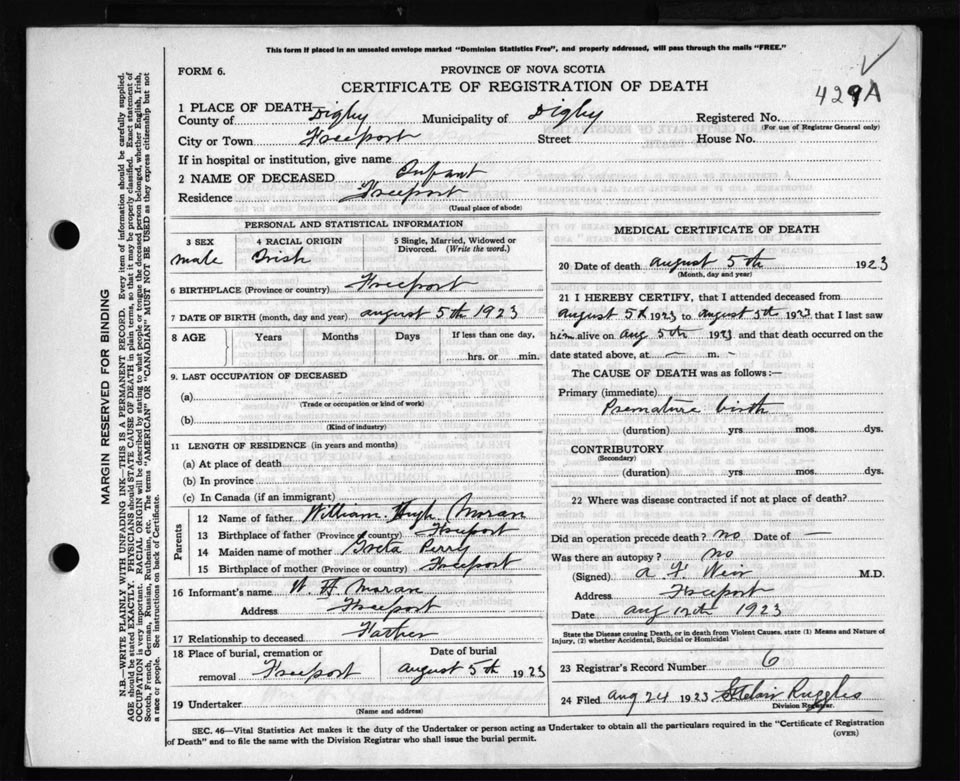 This form if placed in an unsealed envelope marked "Dominion Statistics Free", and properly addressed, will pass through the mails "FREE."
FORM 6.
PROVINCE OF NOVA SCOTIA
CERTIFICATE OF REGISTRATION OF DEATH
429A
1 PLACE OF DEATH—
County of Digby Municipality of Digby Registered No.
(For use of Registrar General only)
City or Town Freeport Street House No.
If in hospital or institution, give name
2 NAME OF DECEASED Infant
Residence Freeport
(Usual place of abode)
PERSONAL AND STATISTICAL INFORMATION
3 SEX 4 RACIAL ORIGIN 5 Single, Married, Widowed or Divorced. (Write the word.)
male Irish
6 BIRTHPLACE (Province or country) Freeport
7 DATE OF BIRTH (month, day and year) august 5th 1923
8 AGE Years Months Days If less than one day,
hrs. or min.
9. LAST OCCUPATION OF DECEASED
(a)
(Trade or occupation or kind of work)
(b)
(Kind of industry)
11 LENGTH OF RESIDENCE (in years and months)
(a) At place of death
(b) In province
(c) In Canada (if an immigrant)
Parents
12 Name of father William Hugh Moran
13 Birthplace of father (Province or country) Freeport
14 Maiden name of mother Greta Perry
15 Birthplace of mother (Province or country) Freeport
16 Informant's name W H Moran
Address Freeport
17 Relationship to deceased Father
18 Place of burial, cremation or removal Freeport
Date of burial august 5th 1923
19 Undertaker
(Name and address)
MEDICAL CERTIFICATE OF DEATH
20 Date of death august 5th 1923
(Month, day and year)
21 I HEREBY CERTIFY, that I attended deceased from
august 5th 1923 to august 5th 1923 that I last saw
him alive on Aug 5th 1923 and that death occurred on the
date stated above, at — m. —
The CAUSE OF DEATH was as follows:—
Primary (immediate)
Premature birth
(duration) yrs. mos. dys.
CONTRIBUTORY
(Secondary)
(duration) yrs. mos. dys.
22 Where was disease contracted if not at place of death?
Did an operation precede death? no Date of —
Was there an autopsy? no
(Signed) A F Weir M.D.
Address Freeport
Date aug 12th 1923
State the Disease causing Death, or in death from Violent Causes, state (1) Means and Nature of
Injury, (2) whether Accidental, Suicidal or Homicidal
23 Registrar's Record Number 6
24 Filed Aug 24 1923 Ruggles
Division Registrar.
SEC. 46—Vital Statistics Act makes it the duty of the Undertaker or person acting as Undertaker to obtain all the particulars required in the "Certificate of Registration
of Death" and to file the same with the Division Registrar who shall issue the burial permit.
(OVER)
MARGIN RESERVED FOR BINDING
N.B.—WRITE PLAINLY WITH UNFADING INK—THIS IS A PERMANENT RECORD. Every item of information should be carefully supplied.
AGE should be stated EXACTLY. PHYSICIANS should STATE CAUSE OF DEATH in plain terms, so that it may be properly classified. Exact statement of
OCCUPATION is very important. RACIAL ORIGIN will be described by stating to what people or tongue the deceased person belonged, whether English, Irish,
Scotch, French, German, Russian, Ruthenian, etc. The terms "AMERICAN" OR "CANADIAN" MUST NOT BE USED as they express citizenship but not
a race or people. See instructions on back of Certificate.